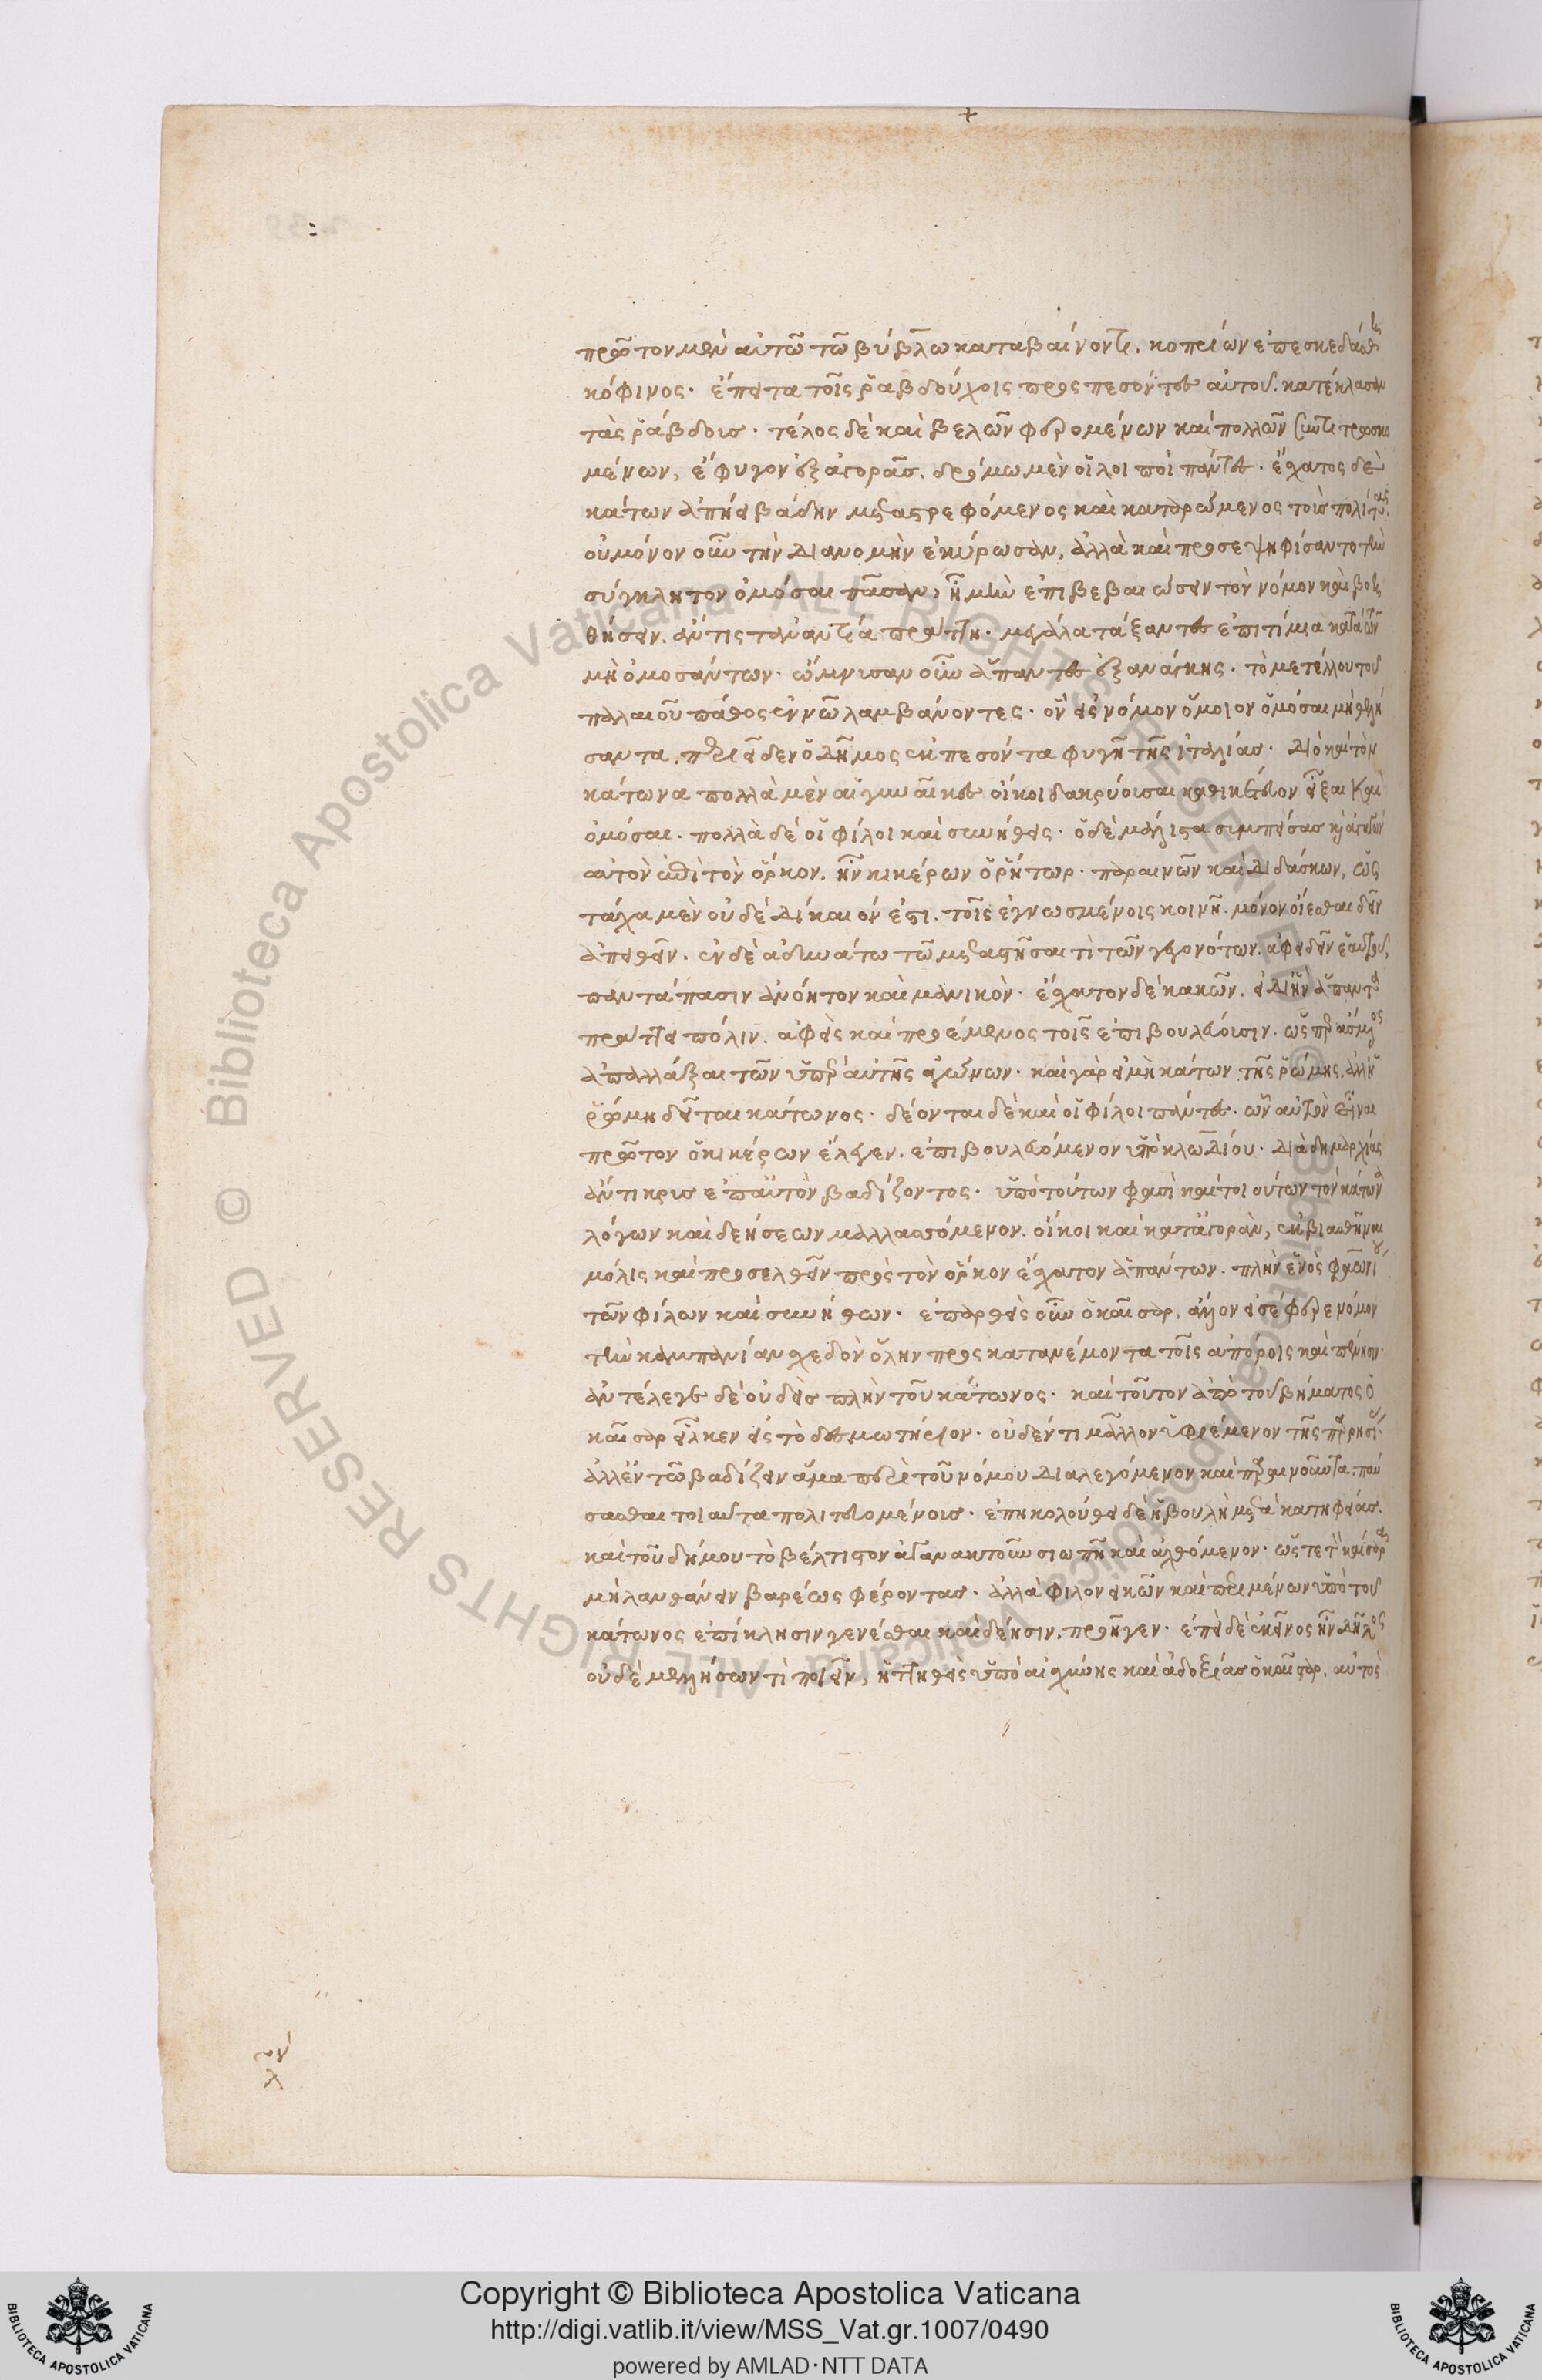 πρῶτον μὲν αὐτῶ τῶ βύβλω καταβαίνοντι. κοπρίων ἐπεσκεδάσθη
κόφινος· ἔπειτα τοῖς ῥαβδούχοις προσπεσόντες αὐτοῦ. κατέκλασαν
τὰς ῥάβδους· τέλος δὲ καὶ βελῶν φερομένων καὶ πολλῶν συντιτρωσκο
μένων, ἔφυγον ἐξ ἀγορᾶς. δρόμω μὲν οἱ λοιποὶ πάντες· ἔσχατος δὲ
κάτων ἀπήει βάδην μεταστρεφόμενος καὶ καταρώμενος τοὺς πολίτας.
οὐ μόνον οὖν τὴν διανομὴν ἐκύρωσαν, ἀλλὰ καὶ προσεψηφίσαντο τὴν
σύγκλητον ὀμόσαι πᾶσαν, ἦ μὴν ἐπιβεβαιώσειν τὸν νόμον καὶ βοη
θήσειν. ἄν τις τἀναντία πράττη· μεγάλα τάξαντες ἐπιτίμια κατὰ τῶν
μὴ ὀμοσάντων· ὤμνυσαν οὖν ἅπαντες ἐξ ἀνάγκης· τὸ μετέλλου τοῦ
παλαιοῦ πάθος ἐν νῶ λαμβάνοντες· ὃν εἰς νόμον ὅμοιον ὀμόσαι μὴ θελή
σαντα. περιεῖδεν ὁ δῆμος ἐκπεσόντα φυγῆ τῆς ἰταλίας· διὸ καὶ τὸν
κάτωνα πολλὰ μὲν αἱ γυναῖκες οἴκοι δακρύουσαι καθικέτευον εἶξαι καὶ
ὀμόσαι. πολλὰ δὲ οἱ φίλοι καὶ συνήθεις· ὁ δὲ μάλιστα συμπείσας καὶ ἀγαγὼν
αὐτὸν ἐπὶ τὸν ὅρκον. ἦν κικέρων ὁ ῥήτωρ· παραινῶν καὶ διδάσκων, ὡς
τάχα μὲν οὐδὲ δίκαιόν ἐστι. τοῖς ἐγνωσμένοις κοινῆ. μόνον οἴεσθαι δεῖν
ἀπειθεῖν. ἐν δὲ ἀδυνάτω τῶ μεταστῆσαι τὶ τῶν γεγονότων. ἀφειδεῖν ἑαυτοῦ,
παντάπασιν ἀνόητον καὶ μανικὸν· ἔσχατον δὲ κακῶν. εἰ δι' ἣν ἅπαντα
πράττει πόλιν. ἀφεὶς καὶ προέμενος τοῖς ἐπιβουλεύουσιν. ὥσπερ ἄσμενος
ἀπαλλάξαι τῶν ὑπὲρ αὐτῆς ἀγώνων· καὶ γὰρ εἰ μὴ κάτων τῆς ῥώμης. ἀλλ' ἡ
ῥώμη δεῖται κάτωνος· δέονται δὲ καὶ οἱ φίλοι πάντες· ὧν αὑτὸν εἶναι
πρῶτον ὁ κικέρων ἔλεγεν. ἐπιβουλευόμενον ὑπὸ κλωδίου· διὰ δημαρχίας
ἄντικρυς ἐπ' αὐτὸν βαδίζοντος· ὑπὸ τούτων φασὶ καὶ τοιούτων τὸν κάτωνα
λόγων καὶ δεήσεων μαλλασσόμενον. οἴκοι καὶ κατ' ἀγορὰν, ἐκβιασθῆναι
μόλις καὶ προσελθεῖν πρὸς τὸν ὅρκον ἔσχατον ἁπάντων. πλὴν ἑνὸς φαωνίου
τῶν φίλων καὶ συνήθων· ἐπαρθεὶς οὖν ὁ καῖσαρ. ἄλλον εἰσέφερε νόμον
τὴν καμπανίαν σχεδὸν ὅλην προσκατανέμοντα τοῖς ἀπόροις καὶ πένησιν·
ἀντέλεγε δὲ οὐδεὶς πλὴν τοῦ κάτωνος· καὶ τοῦτον ἀπὸ τοῦ βήματος ὁ
καῖσαρ εἷλκεν εἰς τὸ δεσμωτήριον· οὐδέν τι μᾶλλον ὑφιέμενον τῆς παρρησίας·
ἀλλ' ἐν τῶ βαδίζειν ἅμα περὶ τοῦ νόμου διαλεγόμενον καὶ παραινοῦντα. παύ
σασθαι τοιαῦτα πολιτευομένους· ἐπηκολούθει δὲ ἡ βουλὴ μετὰ κατηφείας.
καὶ τοῦ δήμου τὸ βέλτιστον ἀγανακτοῦν σιωπῆ καὶ ἀχθόμενον· ὥστε τὸν καίσαρα
μὴ λανθάνειν βαρέως φέροντας· ἀλλὰ φιλονεικῶν καὶ περιμένων ὑπὸ τοῦ
κάτωνος ἐπίκλησιν γενέσθαι καὶ δέησιν. προῆγεν· ἐπεὶ δὲ ἐκεῖνος ἦν δῆλος
οὐδὲ μελλήσων τὶ ποιεῖν, ἡττηθεὶς ὑπὸ αἰσχύνης καὶ ἀδοξίας ὁ καῖσαρ. αὐτὸς
Copyright © Biblioteca Apostolica Vaticana
http://digi.vatlib.it/view/MSS_Vat.gr.1007/0490
powered by AMLAD·NTT DATA